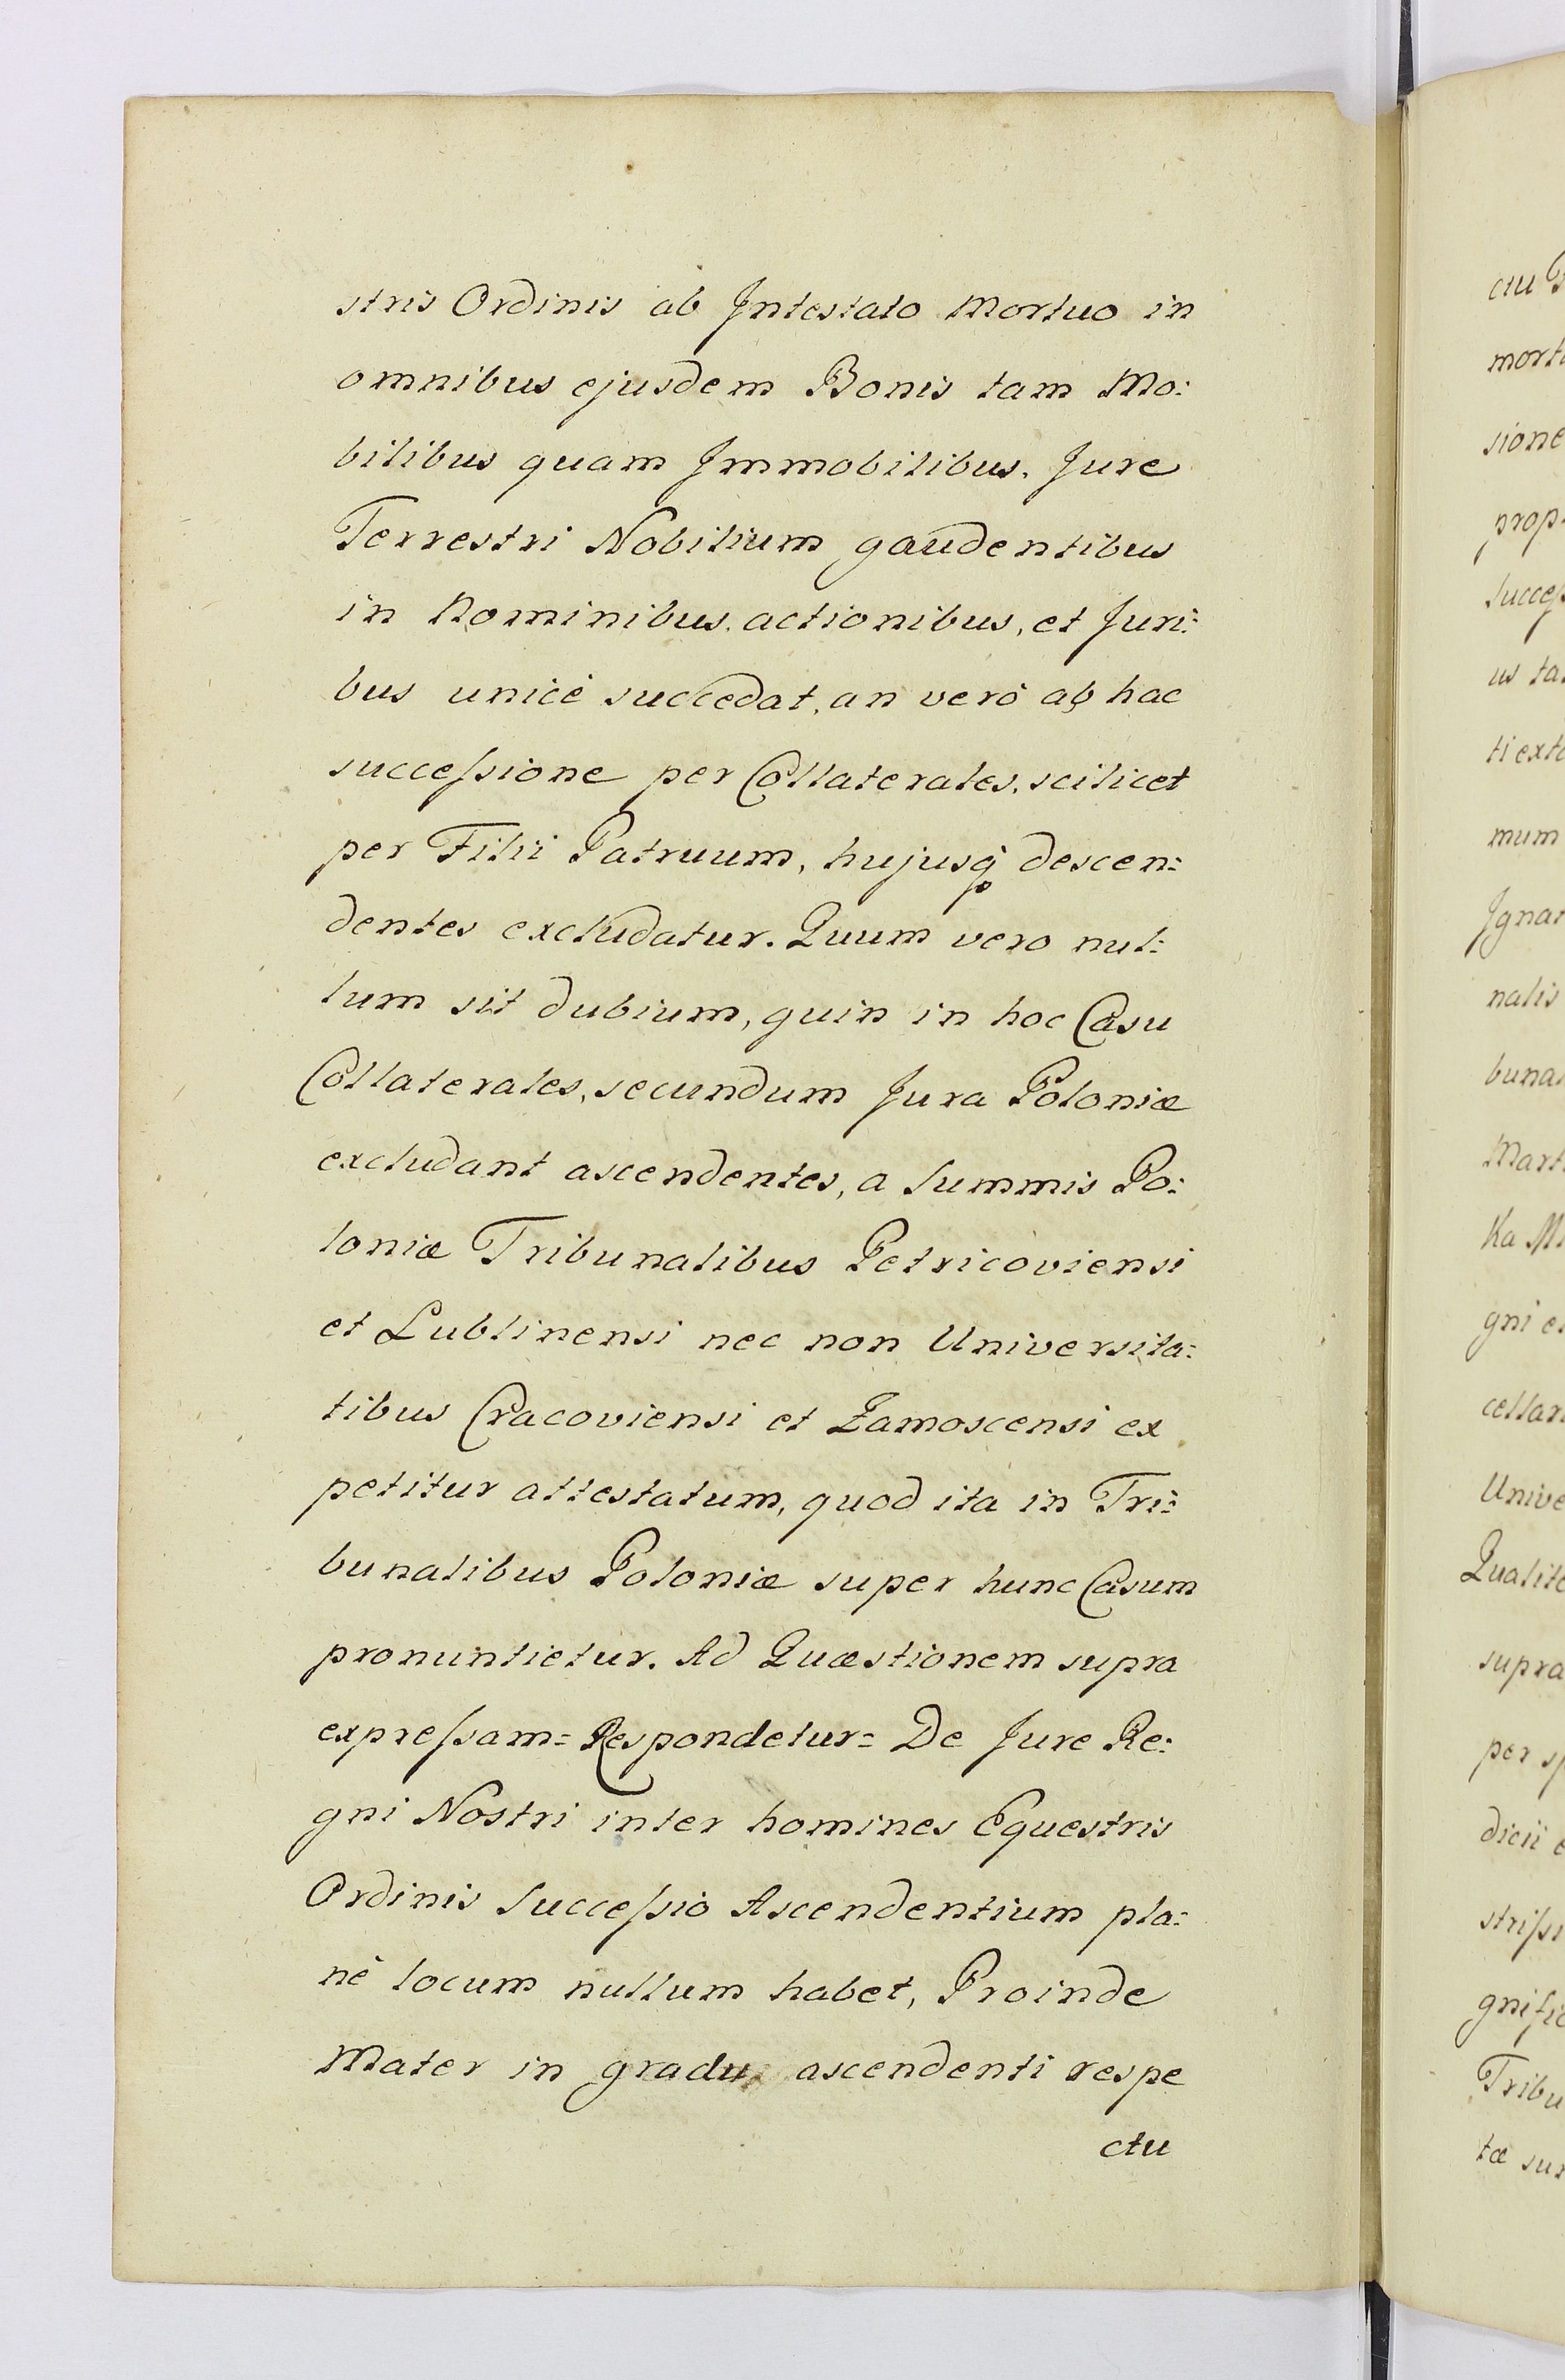 stris Ordinis ab Intestato Mortuo in
omnibus ejusdem Bonis tam Mo:
bilibus quam Immobilibus, Jure
Terrestri Nobilium gaudentibus
in Nominibus, actionibus, et Juri:
bus unicè succedat, an verò ab hac
succeſsione per Collaterales, scilicet
per Filii Patruum, hujusq̃ descen:
dentes excludatur. Quum vero nul:
lum sit dubium, quin in hoc Casu
Collaterales, secundum Jura Poloniæ
excludant ascendentes, a Summis Po:
loniæ Tribunalibus Petricoviensi
et Lublinensi nec non Universita:
tibus Cracoviensi et Zamoscensi ex
petitur attestatum, quod ita in Tri:
bunalibus Poloniæ super hunc Casum
pronuntietur. Ad Quæstionem supra
expreſsam= Respondetur= De Jure Re:
gni Nostri inter homines Equestris
Ordinis Succeſsio Ascendentium pla:
nè locum nullum habet, Proinde
Mater in gradu ascendenti respe
ctu
ctu
mort
sione
prop
Succeſ
us ta
ti ext
mum
Ignar
nalis
buna
Mart
Ka M
gni e
cellar
Unive
Qualit
supra
per sp
dicii
striſsi
gnific
Tribu
tæ su